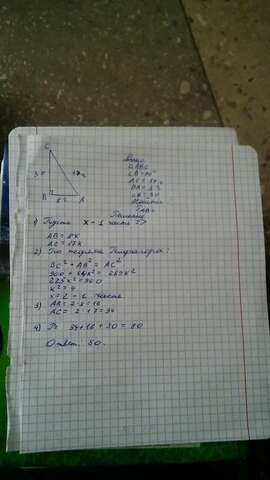 C
30
17x
B
8x
A
Дано
△ABC
∠B=90°
BC = 30
Найти
P ABC
Решение
1) Пусть x - 1 часть
AB = 8x
AC = 17x
2) По теореме Пифагора:
BC² + AB² = AC²
900 + 64x² = 289x²
225x² = 900
x² = 4
x = 2 - 1 часть
3) AB = 2·8 = 16
AC = 2·17 = 34
4) P= 34+16+30 = 80
Ответ: 80.